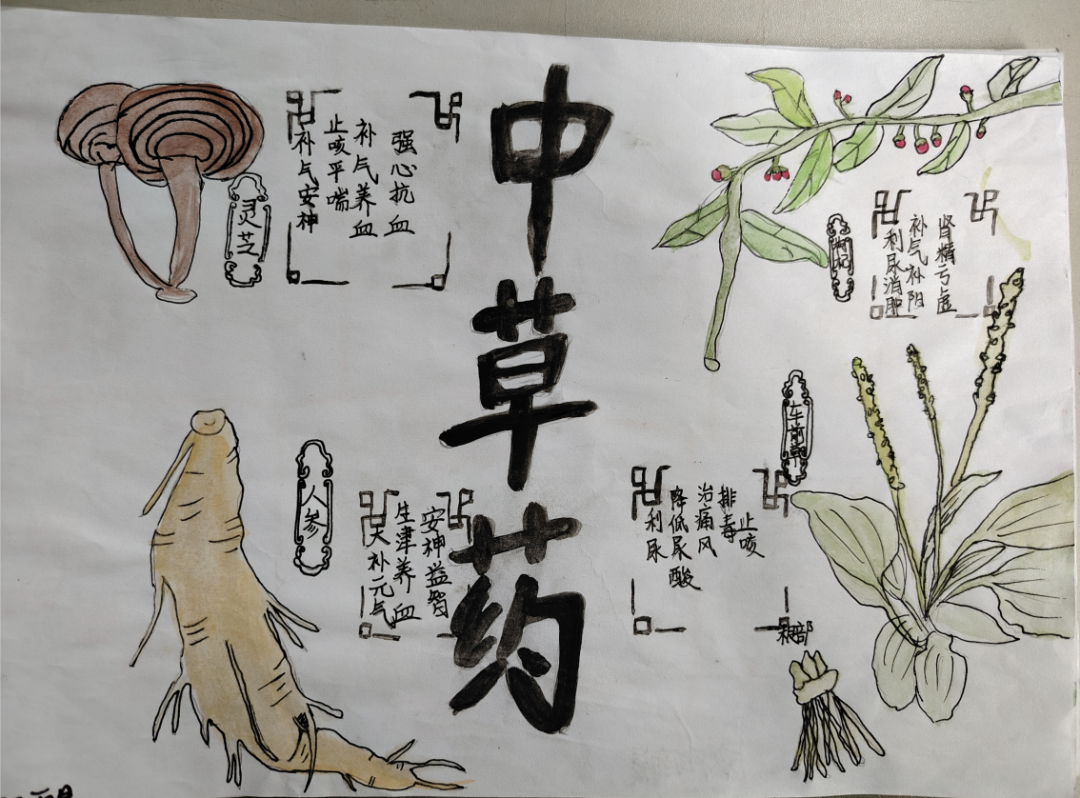 中草药
灵芝
强心抗血
补气养血
止咳平喘
补气安神
枸杞
肾精亏虚
补气补阳
利尿消肿
人参
安神益智
生津养血
大补元气
车前草
止咳
排毒
治痛风
降低尿酸
利尿
根部